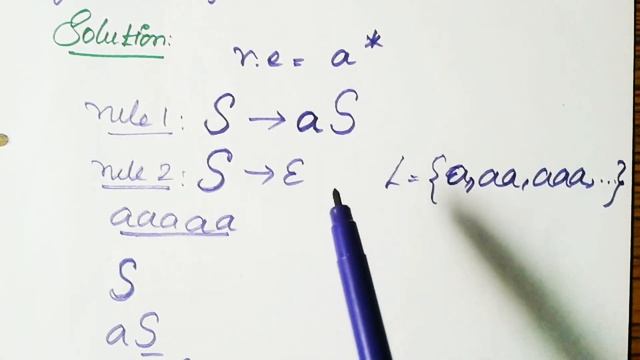 Solution:
r.e = a*
rule 1: S → aS
rule 2: S → ε
L = {a, aa, aaa, ...}
aaaaa
S
aS